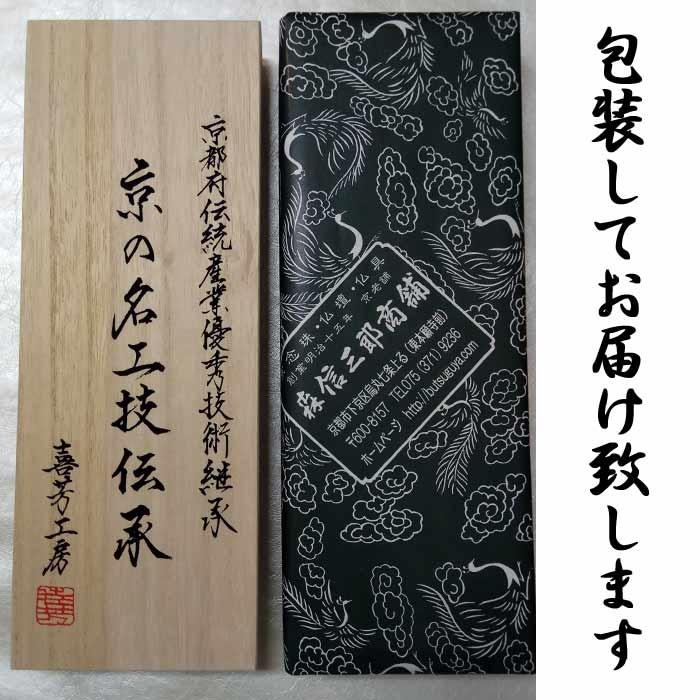 包装してお届け致します
京都府伝統産業優秀技術継承
京の名工技伝承
喜芳工房
念珠・仏壇・仏具
創業明治十五年 京老舗
森信三郎商舗
京都市下京区烏丸七条上る(東本願寺前)
〒600-8157 TEL075(371)9236
ホームページ http://butsuguya.com